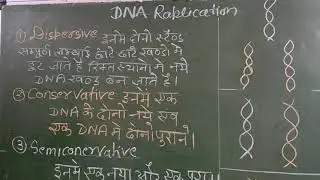 DNA Raplication
① Dispersive इनमें दोनों स्ट्रैण्ड
सम्पूर्ण लम्बाई छोटे छोटे खण्डों में
टूट जाते हैं रिक्त स्थानों में नये
DNA खण्ड बन जाते हैं।
② Conservative इनमें एक
DNA के दोनों नये एवं
एक DNA में दोनों पुराने।
③ Semiconervative
इनमें एक नया और एक पुरा